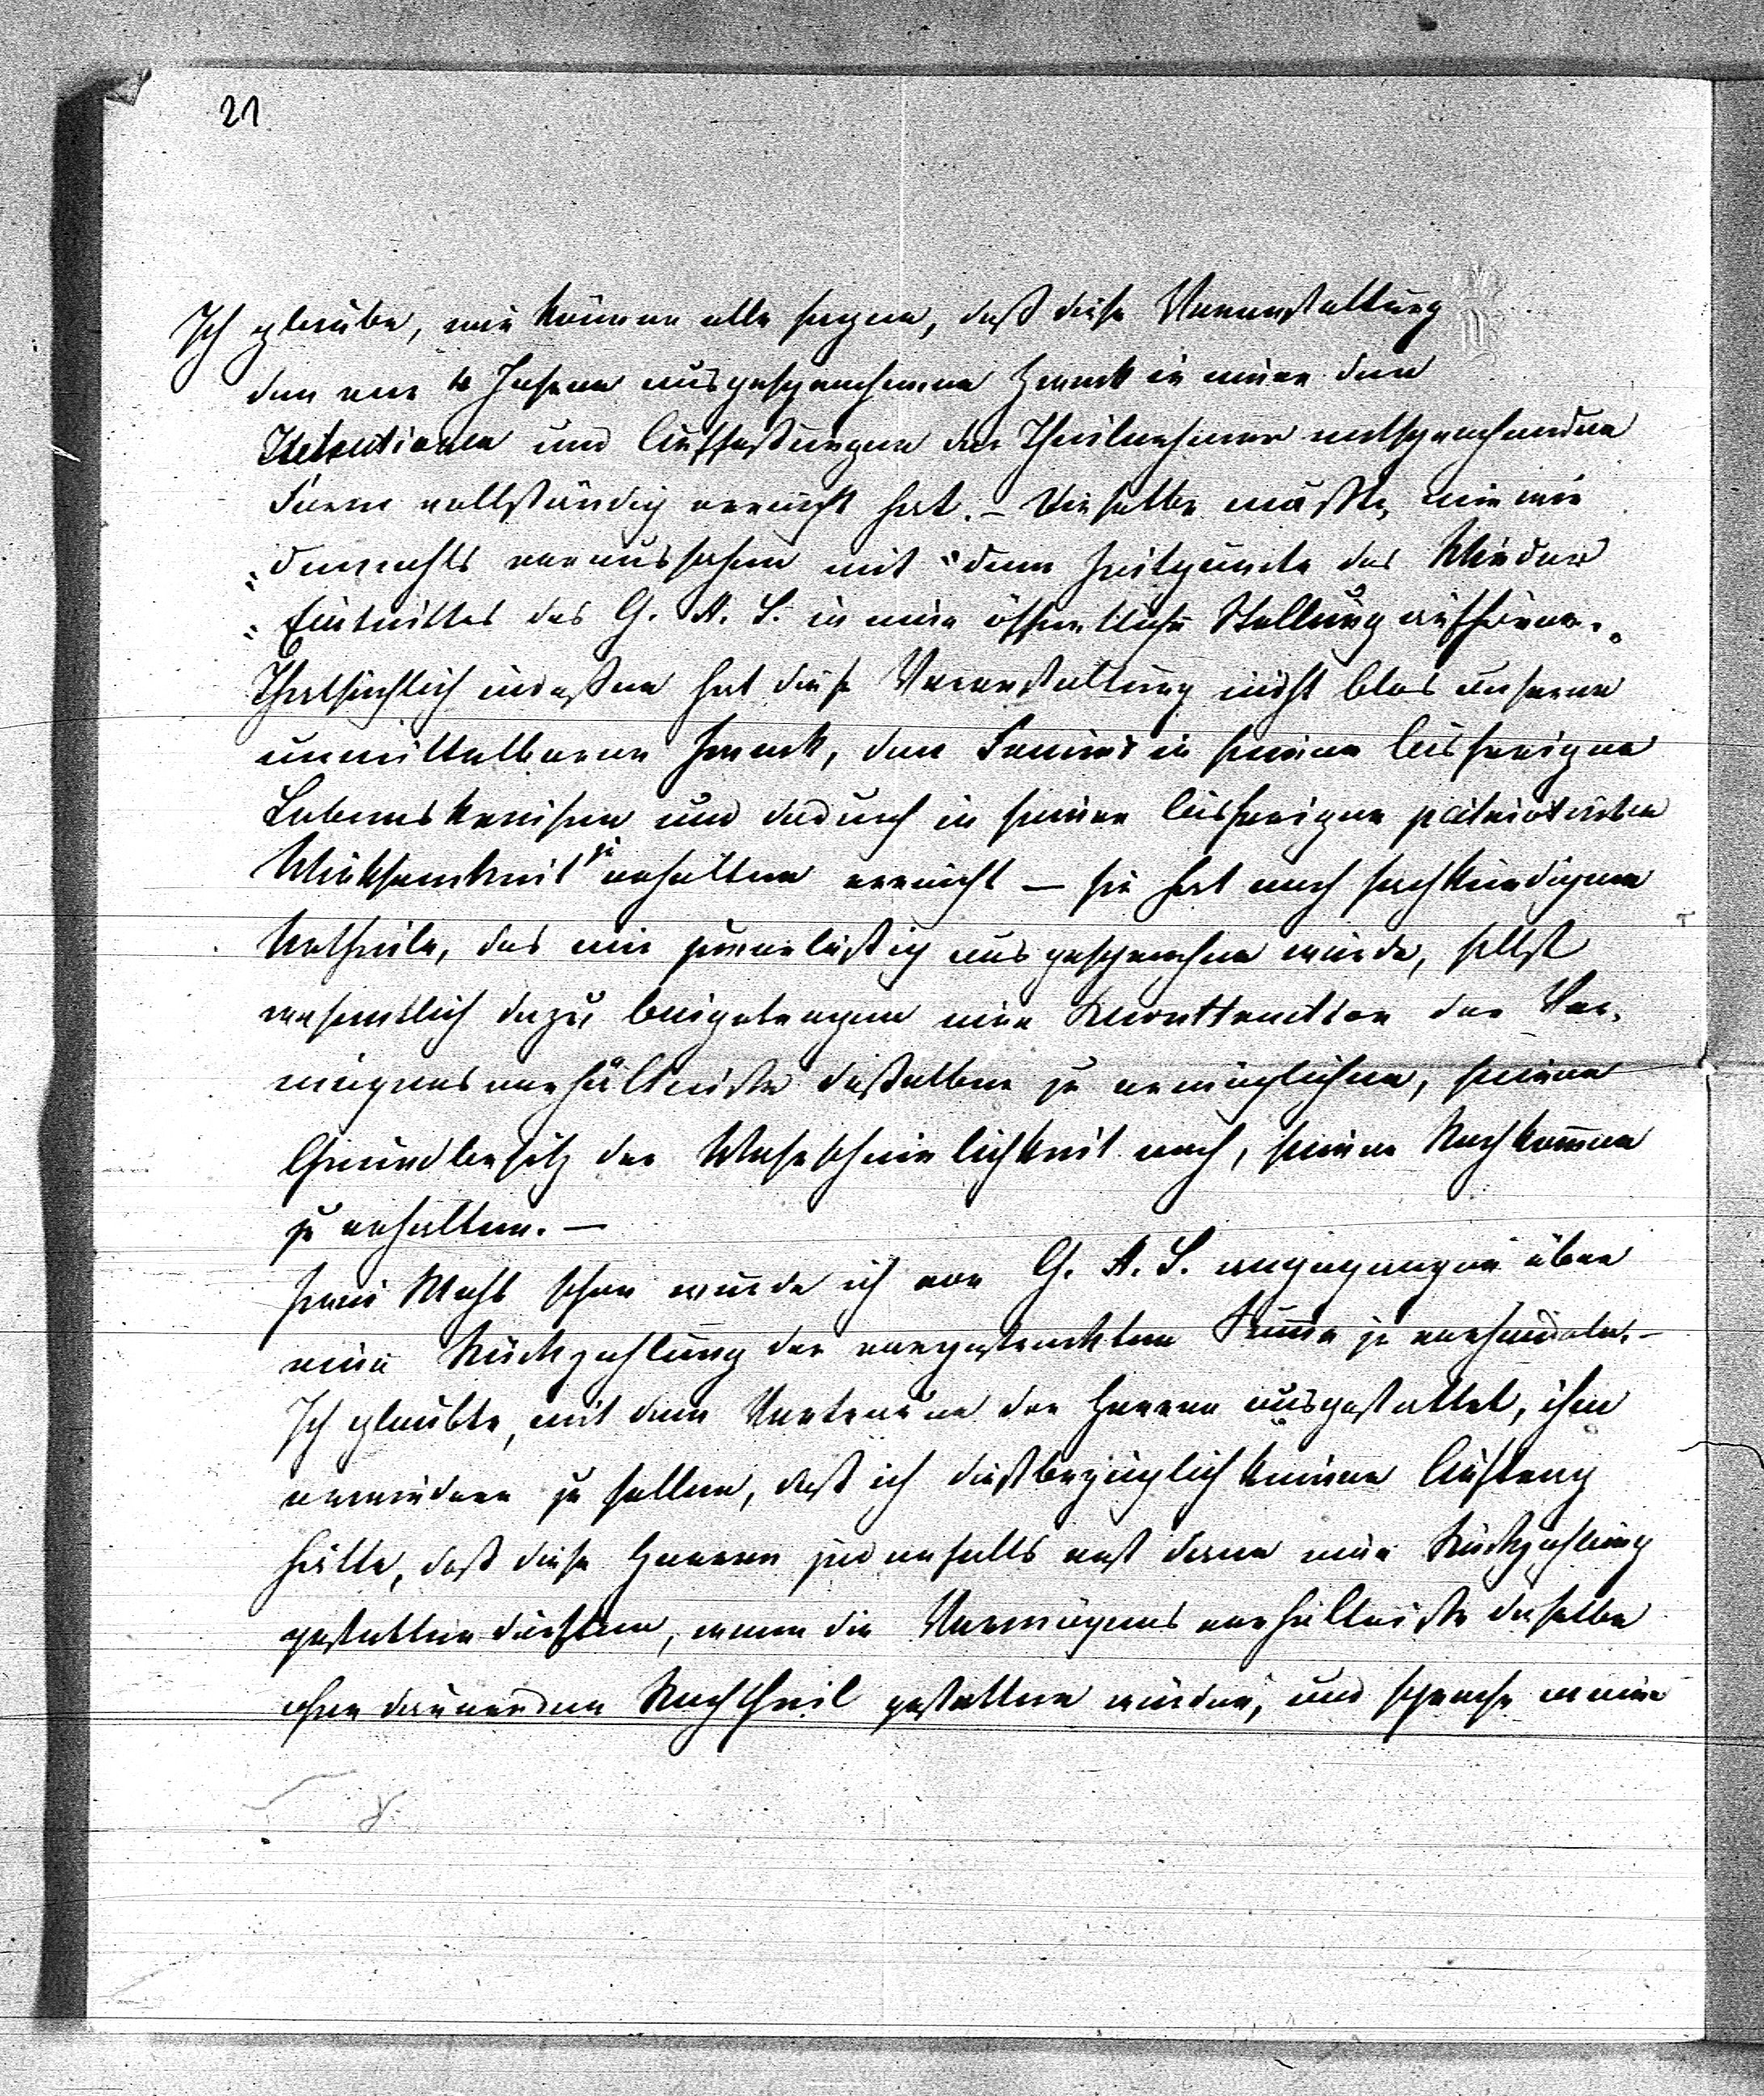 21
Ich glaube, wir können alle sagen, daß diese Veranstaltung
den vor 4 Jahren ausgesprochenen Zweck in einer den
Intentionen und Auffaßungen der Theilnehmer entsprechenden
Form vollständig erreicht hat. – Dieselbe mußte, wie wir
„damahls voraussahen mit „dem Zeitpunkte des Wieder
„Eintrittes des G. A. S. in eine öffentliche Stellung aufhören.“
Thatsächlich indeßen hat diese Veranstaltung nicht blos unseren
unmittelbaren Zweck, den Freund in seinen bisherigen
Lebenskreisen und dadurch in seiner bisherigen patriotischen
Wirksamkeit zu erhalten erreicht – sie hat nach sachkundigem
Urtheile, das mir zuverläßig ausgesprochen wurde, selbst
wesentlich dazu beigetragen eine der Ver-
mögensverhältniße deßelben zu ermöglichen, seinen
Grundbesitz der Wahrscheinlichkeit nach, seinen Nachkommen
zu erhalten. –
Zwei Mahl schon wurde ich von G. A. S. angegangen über
eine Rückzahlung der vorgestreckten Summe zu verhandeln. –
Ich glaubte, mit dem Vertrauen der Herren ausgestattet, ihm
erwiedern zu sollen, daß ich dießbezüglich keinen Auftrag
hätte, daß diese Herren jedenfalls erst dann eine Rückzahlung
gestatten dürften, wenn die Vermögensverhältniße dieselbe
ohne dauernden Nachtheil gestatten würden, und sprach meine